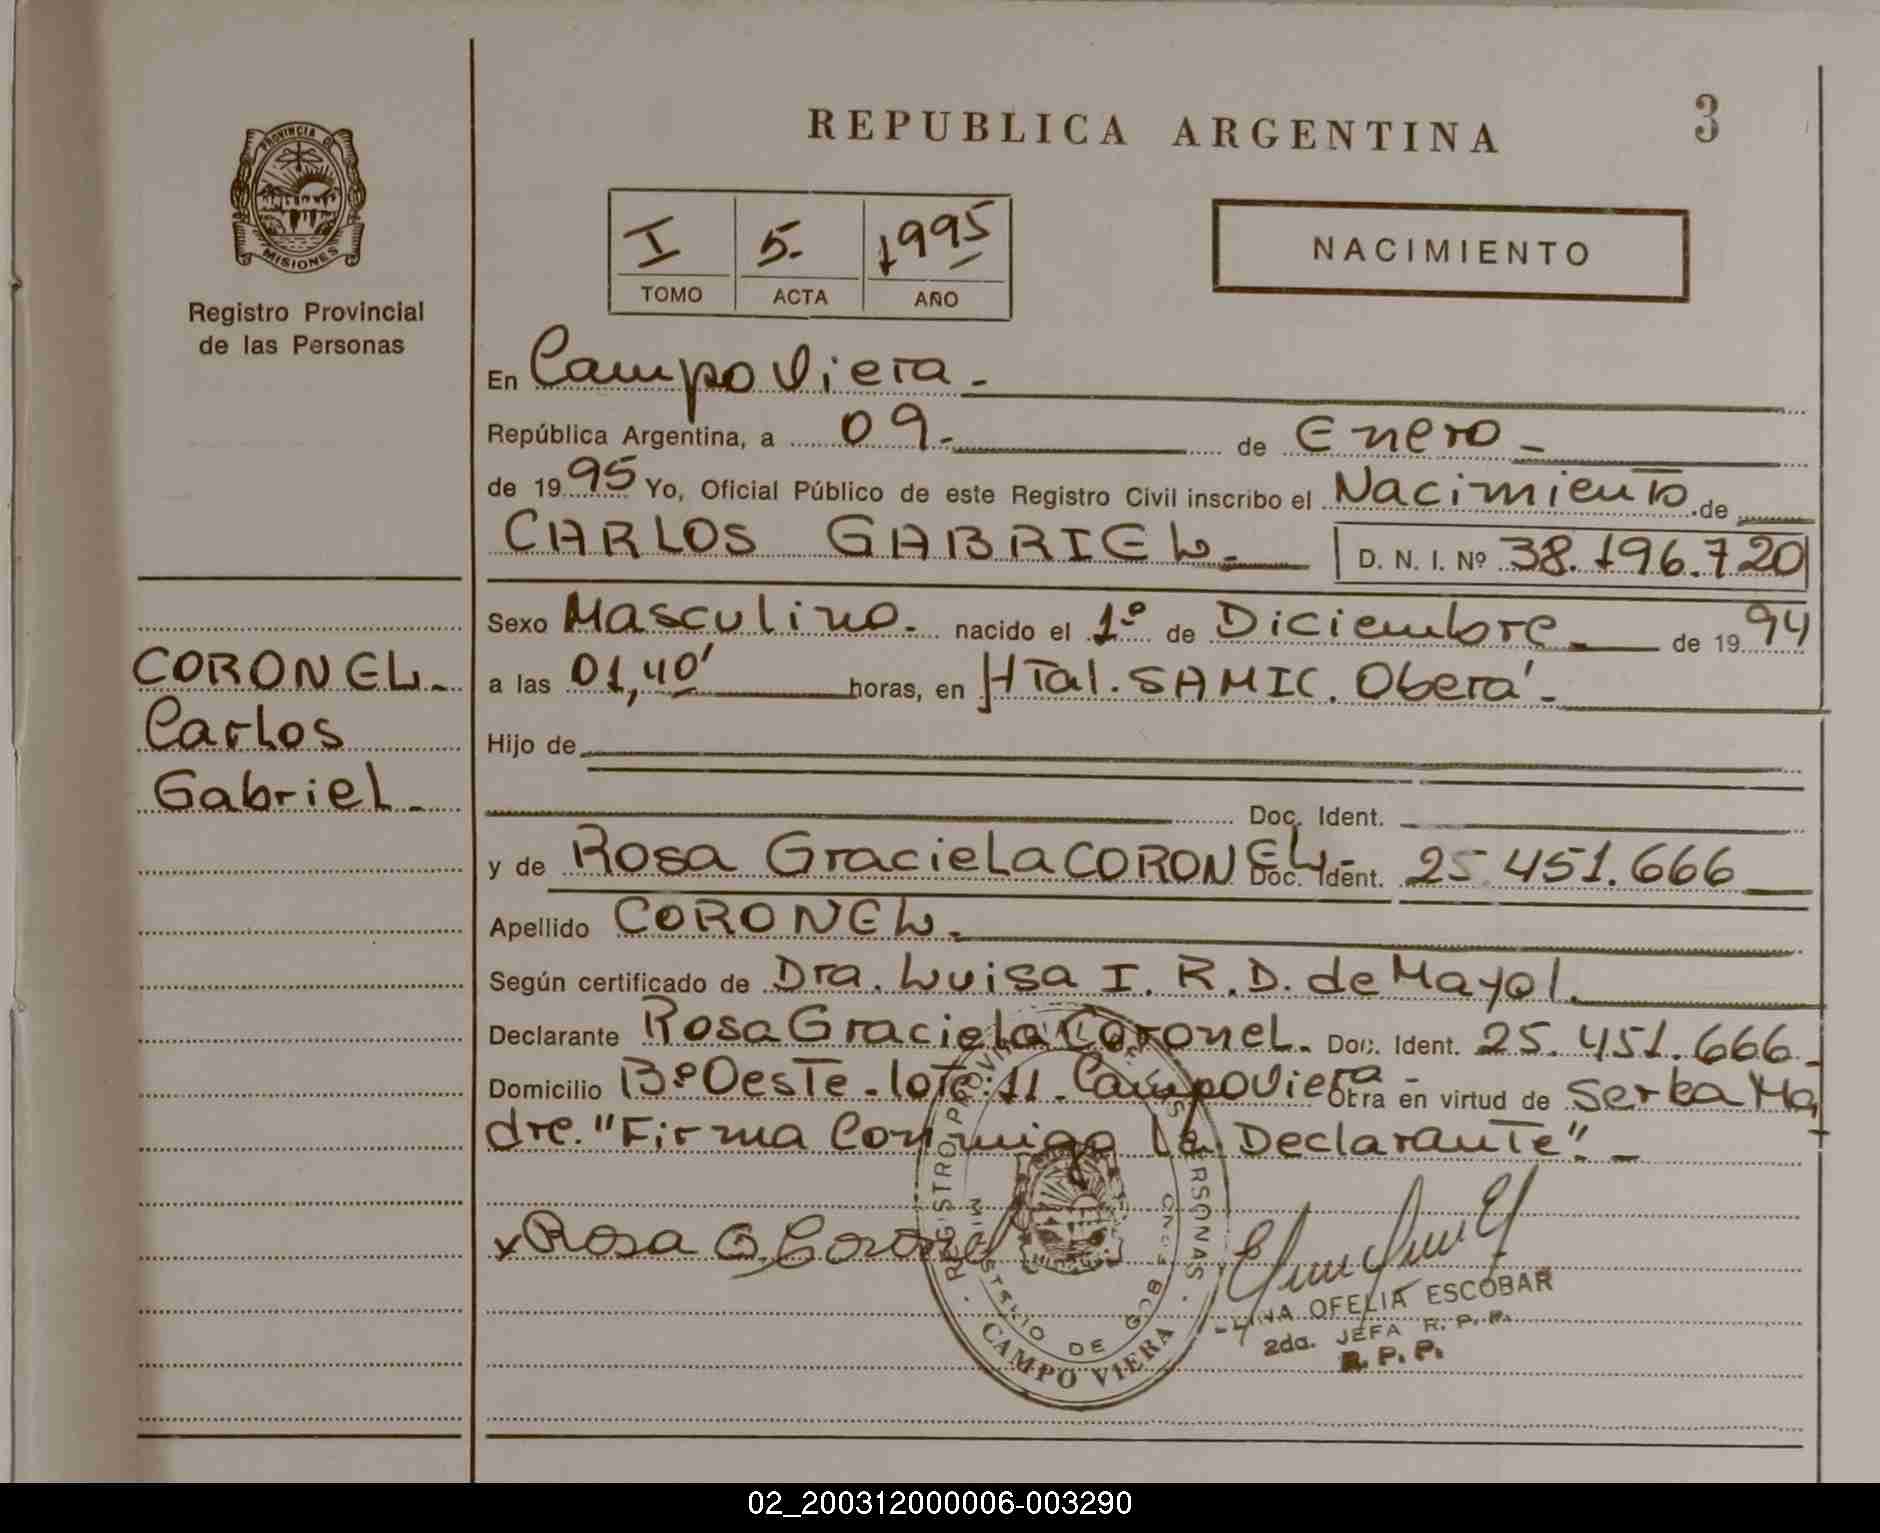 REPUBLICA ARGENTINA
3
PROVINCIA DE
MISIONES
Registro Provincial
de las Personas
I 5. 1995
TOMO ACTA AÑO
NACIMIENTO
En Campo Viera -
República Argentina, a 09. de Enero -
de 1995 Yo, Oficial Público de este Registro Civil inscribo el Nacimiento de
CARLOS GABRIEL. D. N. I. Nº 38.196.720
Sexo Masculino. nacido el 1º de Diciembre de 1994
a las 01,40' horas, en HTal. SAMIC. Oberá -
Hijo de
Doc. Ident.
y de Rosa Graciela CORONEL - Doc. Ident. 25.451.666
Apellido CORONEL.
Según certificado de Dra. Luisa I. R. D. de Mayol.
Declarante Rosa Graciela Coronel. Doc. Ident. 25.451.666.
Domicilio Bº Oeste - lote: 11 - Campo Viera - Obra en virtud de ser la Ma
dre. "Firma Conmigo la Declarante". -
x Rosa G. Coronel
CORONEL.
Carlos
Gabriel.
REGISTRO PROVINCIAL DE LAS PERSONAS
MINISTERIO DE GOB
CAMPO VIERA
OFELIA ESCOBAR
2da. JEFA R. P. P.
R. P. P.
02_200312000006-003290